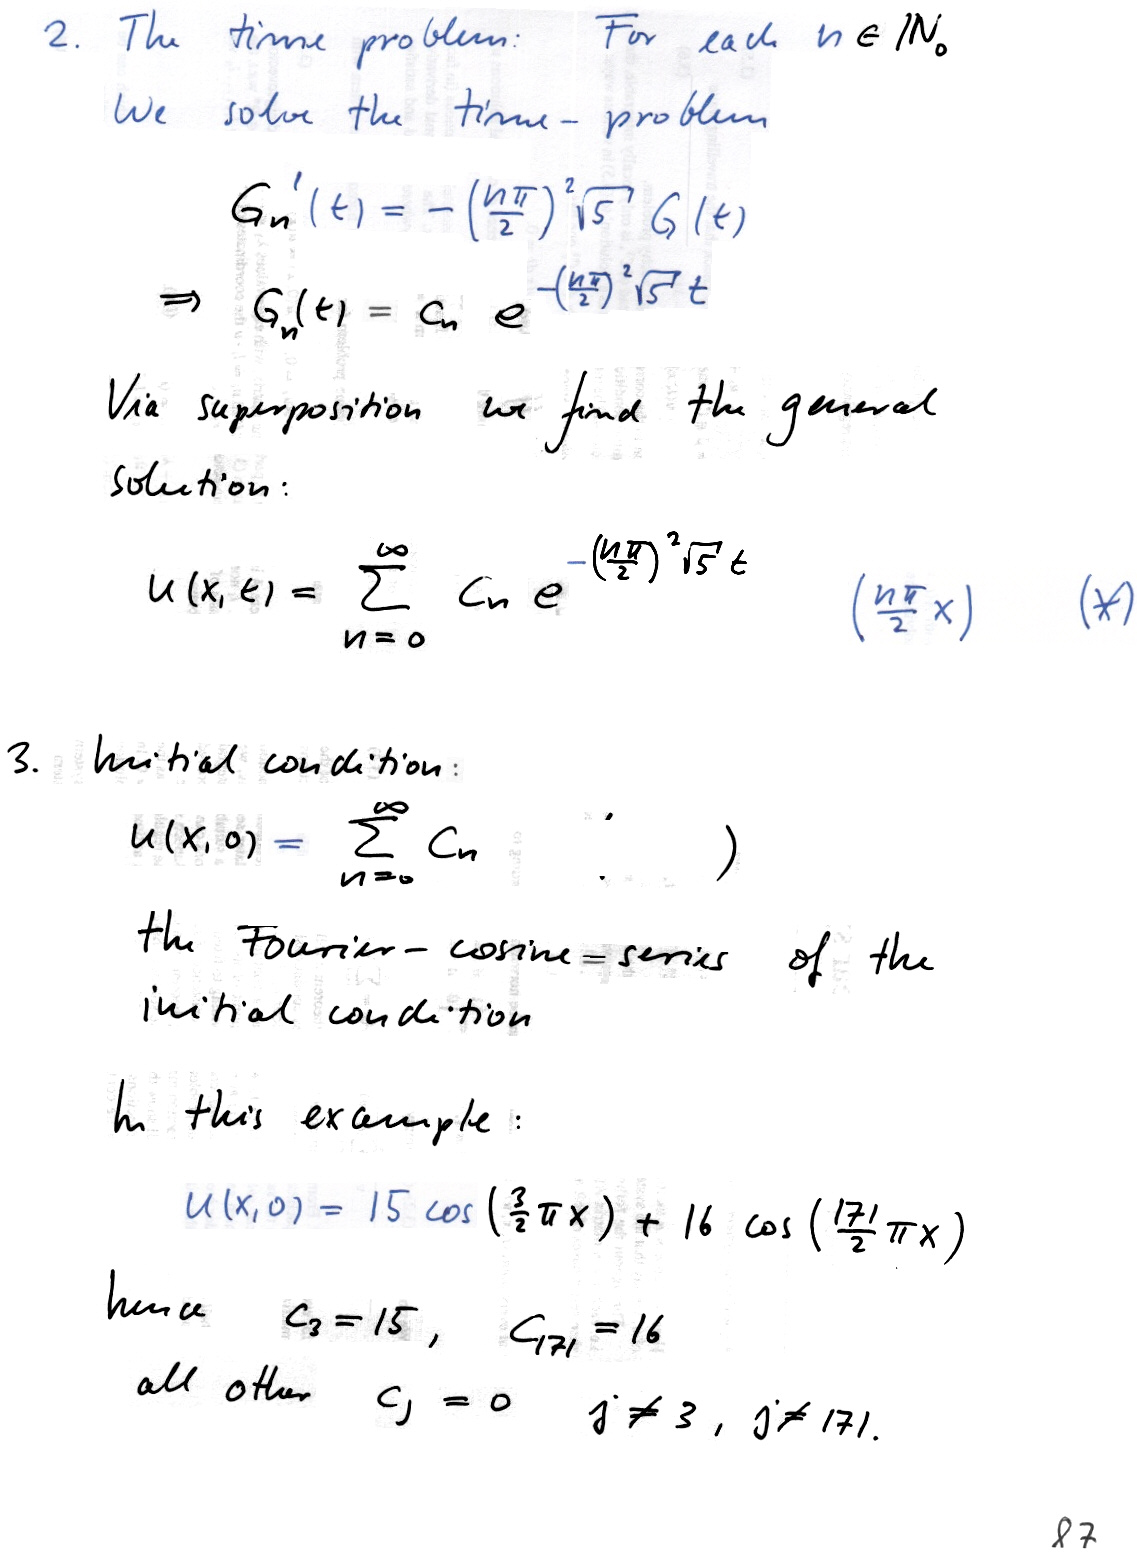 2. The time problem: For each n ∈ ℕ₀
we solve the time-problem
Gₙ'(t) = -(nπ/2)² √5 G(t)
⇒ Gₙ(t) = cₙ e^{-(nπ/2)² √5 t}
Via superposition we find the general
solution:
u(x,t) = ∑_{n=0}^{∞} cₙ e^{-(nπ/2)² √5 t} (nπ/2 x) (*)
3. Initial condition:
u(x,0) = ∑_{n=0}^{∞} cₙ )
the Fourier-cosine-series of the
initial condition
In this example:
u(x,0) = 15 cos(3/2 πx) + 16 cos(171/2 πx)
hence c₃ = 15, c₁₇₁ = 16
all other cⱼ = 0 j ≠ 3, j ≠ 171.
87